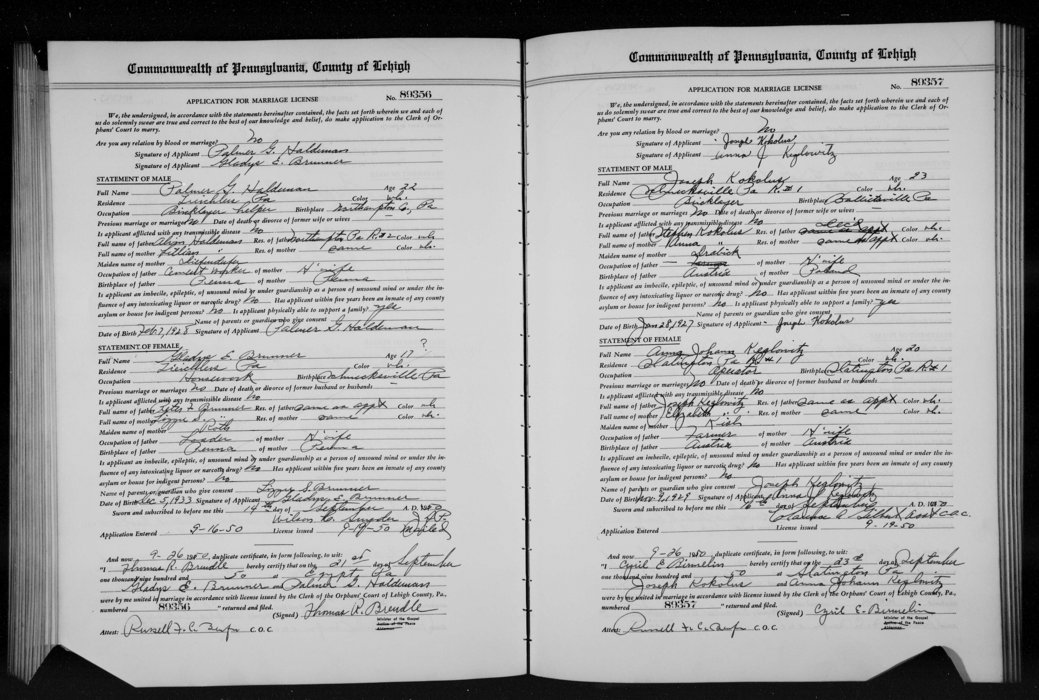 Commonwealth of Pennsylvania, County of Lehigh
APPLICATION FOR MARRIAGE LICENSE No. 89356
We, the undersigned, in accordance with the statements hereinafter contained, the facts set forth wherein we and each of
us do solemnly swear are true and correct to the best of our knowledge and belief, do make application to the Clerk of Or-
phans' Court to marry.
Are you any relation by blood or marriage? No
Signature of Applicant Palmer G. Haldeman
Signature of Applicant Gladys E. Brunner
STATEMENT OF MALE
Full Name Palmer G. Haldeman Age 22
Residence Pa Color wh.
Occupation Bricklayer helper Birthplace Northampton Co., Pa
Previous marriage or marriages No Date of death or divorce of former wife or wives —
Is applicant afflicted with any transmissible disease No
Full name of father Haldeman Res. of father Northampton Pa R.#2 Color wh.
Full name of mother Lillian " Res. of mother same Color wh.
Maiden name of mother
Occupation of father Cement worker of mother H'wife
Birthplace of father Penna of mother Penna
Is applicant an imbecile, epileptic, of unsound mind or under guardianship as a person of unsound mind or under the in-
fluence of any intoxicating liquor or narcotic drug? No Has applicant within five years been an inmate of any county
asylum or house for indigent persons? No Is applicant physically able to support a family? yes
Name of parents or guardian who give consent
Date of Birth Feb. 7, 1928 Signature of Applicant Palmer G. Haldeman
STATEMENT OF FEMALE
Full Name Gladys E. Brunner Age 17 ?
Residence Pa Color wh.
Occupation Housework Birthplace Schnecksville Pa
Previous marriage or marriages No Date of death or divorce of former husband or husbands —
Is applicant afflicted with any transmissible disease No
Full name of father Brunner Res. of father same as appx Color wh.
Full name of mother Res. of mother same Color wh.
Maiden name of mother Roth
Occupation of father Loader of mother H'wife
Birthplace of father Penna of mother Penna
Is applicant an imbecile, epileptic, of unsound mind or under guardianship as a person of unsound mind or under the in-
fluence of any intoxicating liquor or narcotic drug? No Has applicant within five years been an inmate of any county
asylum or house for indigent persons? No
Name of parents or guardian who give consent S. Brunner
Date of Birth Dec. 5, 1933 Signature of Applicant Gladys E. Brunner
Sworn and subscribed to before me this 14th day of September A. D. 1950
Wilson
Application Entered 9-16-50 License issued 9-19-50 Mailed
And now 9-26 1950, duplicate certificate, in form following, to wit:
"I Thomas R. Brendle hereby certify that on the 21st day of September
one thousand nine hundred and 50 at Egypt Pa
Gladys E. Brunner and Palmer G. Haldeman
were by me united in marriage in accordance with license issued by the Clerk of the Orphans' Court of Lehigh County, Pa.,
numbered 89356 " returned and filed.
(Signed) Thomas R. Brendle
Minister of the Gospel
Justice of the Peace
Alderman
Attest: Russell C. O. C.
Commonwealth of Pennsylvania, County of Lehigh
APPLICATION FOR MARRIAGE LICENSE No. 89357
We, the undersigned, in accordance with the statements hereinafter contained, the facts set forth wherein we and each of
us do solemnly swear are true and correct to the best of our knowledge and belief, do make application to the Clerk of Or-
phans' Court to marry.
Are you any relation by blood or marriage? No
Signature of Applicant Joseph Kokolus
Signature of Applicant Anna J Keglovitz
STATEMENT OF MALE
Full Name Joseph Kokolus Age 23
Residence Schnecksville Pa R#1 Color wh.
Occupation Bricklayer Birthplace Ballietsville Pa
Previous marriage or marriages No Date of death or divorce of former wife or wives —
Is applicant afflicted with any transmissible disease No
Full name of father Stephen Kokolus Res. of father same as appx Color wh.
Full name of mother Anna " Res. of mother same as appx Color wh.
Maiden name of mother Drabick
Occupation of father — Farmer of mother H'wife
Birthplace of father Austria of mother Poland
Is applicant an imbecile, epileptic, of unsound mind or under guardianship as a person of unsound mind or under the in-
fluence of any intoxicating liquor or narcotic drug? No Has applicant within five years been an inmate of any county
asylum or house for indigent persons? No Is applicant physically able to support a family? yes
Name of parents or guardian who give consent
Date of Birth Jan 28, 1927 Signature of Applicant Joseph Kokolus
STATEMENT OF FEMALE
Full Name Anna Johann Keglovitz Age 20
Residence Slatington Pa R#1 Color wh.
Occupation Operator Birthplace Slatington Pa R#1
Previous marriage or marriages No Date of death or divorce of former husband or husbands —
Is applicant afflicted with any transmissible disease No
Full name of father Joseph Keglovitz Res. of father same as appx Color wh.
Full name of mother Elizabeth " Res. of mother same Color wh.
Maiden name of mother
Occupation of father Farmer of mother H'wife
Birthplace of father Austria of mother Austria
Is applicant an imbecile, epileptic, of unsound mind or under guardianship as a person of unsound mind or under the in-
fluence of any intoxicating liquor or narcotic drug? No Has applicant within five years been an inmate of any county
asylum or house for indigent persons? No
Name of parents or guardian who give consent Joseph Keglovitz
Date of Birth Nov. 9, 1929 Signature of Applicant Anna J Keglovitz
Sworn and subscribed to before me this 16th day of September A. D. 1950
Asst C.O.C.
Application Entered License issued 9-19-50
And now 9-26 1950 duplicate certificate, in form following, to wit:
"I Cyril E. Bimelin hereby certify that on the 23rd day of September
one thousand nine hundred and 50 at Slatington Pa
Joseph Kokolus and Anna Johann Keglovitz
were by me united in marriage in accordance with license issued by the Clerk of the Orphans' Court of Lehigh County, Pa.,
numbered 89357 " returned and filed.
(Signed) Cyril E. Bimelin
Minister of the Gospel
Justice of the Peace
Alderman
Attest: Russell C. O. C.